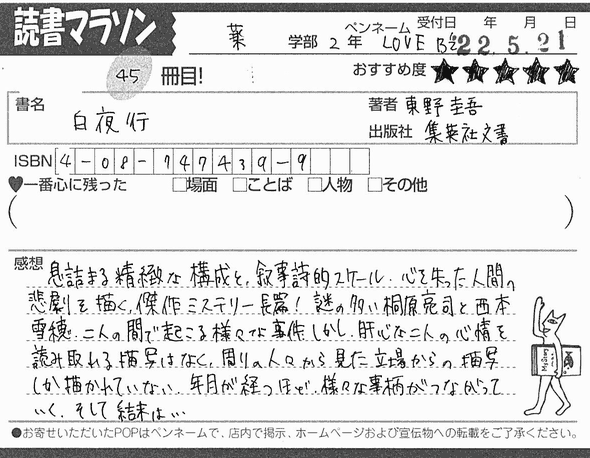 読書マラソン
薬 学部 2年 ペンネーム LOVE B'z 受付日 年 月 日 22.5.21
45 冊目! おすすめ度 ★★★★★
書名 白夜行
著者 東野圭吾
出版社 集英社文書
ISBN 4-08-747439-9
♥一番心に残った □場面 □ことば □人物 □その他
( )
感想 息詰まる精緻な構成と、叙事詩的スケール、心を失った人間の
悲劇を描く、傑作ミステリー長篇!謎の多い桐原亮司と西本
雪穂、二人の間で起こる様々な事件しかし、肝心な二人の心情を
読み取れる描写はなく、周りの人々から見た立場からの描写
しか描かれていない、年月が経つほど、様々な事柄がつながって
いく、そして結末は…
●お寄せいただいたPOPはペンネームで、店内で掲示、ホームページおよび宣伝物への転載をご了承ください。